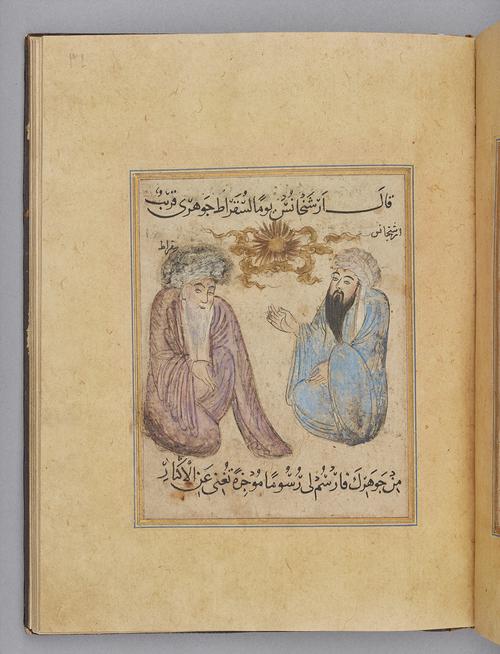 قال ارشنجانس يوما لسقراط جوهرى قريب
ارشنجانس
سقراط
من جوهرك فارسم لى رسوما موجزة تغنى عن الاكثار